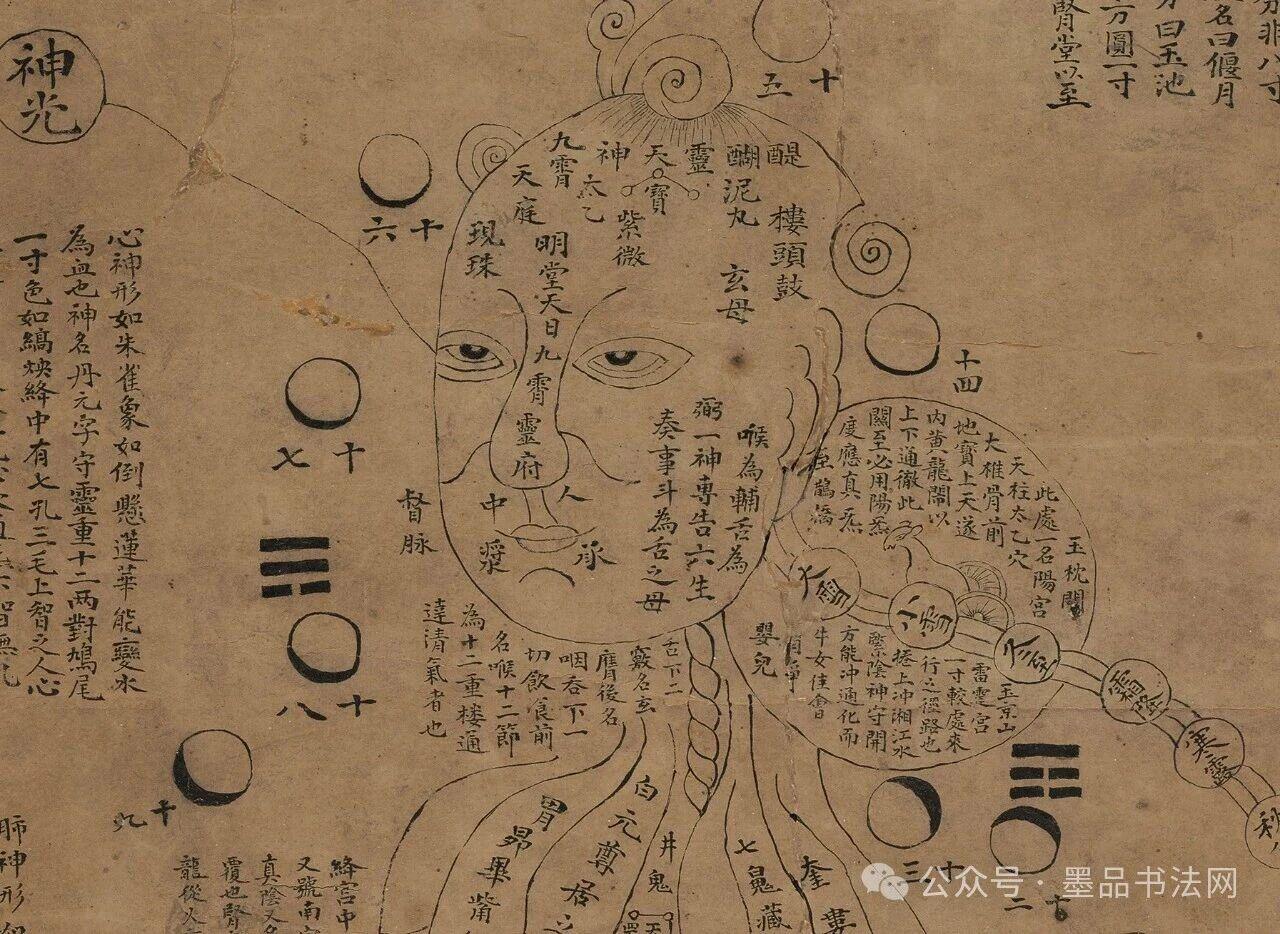 神光
十五
十六
十七
十八
十九
十四
十三
十二
分非八寸
名曰偃月
方曰玉池
方圓一寸
腎堂以至
醍醐
靈
天
神
九霄
泥丸
天寶
太乙
天庭
紫微
樓頭鼓
玄母
現珠
明堂天日九霄靈府
喉為輔舌為
弼一神專告六生
奏事斗為舌之母
人
中
承
漿
督脉
心神形如朱雀象如倒懸蓮華能變水
為血也神名丹元字守靈重十二兩對鳩尾
一寸色如縞映絳中有七孔三毛上智之人心
玉枕關
此處一名陽宮
天柱太乙穴
大椎骨前
地寶上天遂
內黃龍關以
上下通徹此
關至必用陽炁
度應真炁
至鵲橋
大雪
小雪
立冬
霜降
寒露
玉京山
雷霆宮
一寸較處來
行之徑路也
捲上冲湘江水
繫陰神守開
方能冲通化而
牛女佳會
嬰兒
舌下二
竅名玄
膺後名
咽吞下一
切飲食前
名喉十二節
為十二重樓通
達清氣者也
白元尊居之
胃昴畢觜
井鬼
七
藏
奎婁
絳宮中
又號南宮
真陰又名
覆也腎
龍從火
肺神形如
公众号·墨品书法网